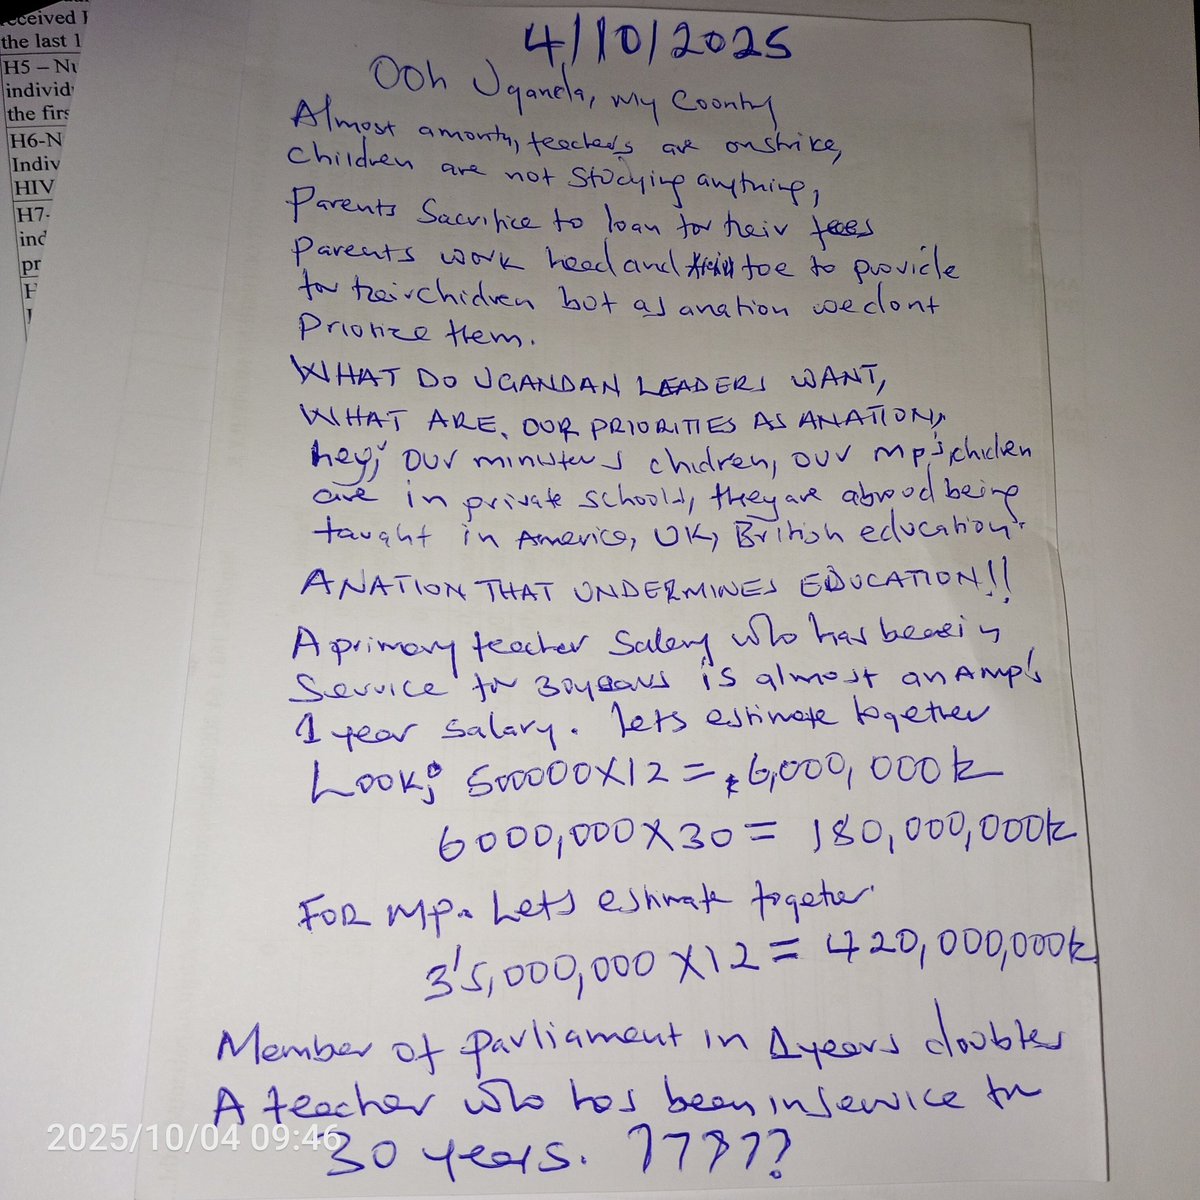 eceived I
the last 1
H5 – Nu
individ
the firs
H6-N
Indiv
HIV
H7-
ind
pr
H
4/10/2025
Ooh Uganda, my Coontry
Almost amonth, teachers are onstrike,
children are not studying anything,
Parents Sacrifice to loan for their fees
parents work head and toe to provide
for their chidren but as anation wedont
Priorize them.
WHAT DO UGANDAN LEADERS WANT,
WHAT ARE. OUR PRIORITIES AS ANATION,
hey; our ministers chidren, our mp's chidren
are in private schools, they are abrod being
taught in America, UK, British education.
ANATION THAT UNDERMINES EDUCATION!!
A primary teacher Salary who has been in
Service for 30years is almost an Amp's
1 year salary. Lets estimate together
Look; 500000X12 = 6,000,000k
6000,000 X 30 = 180,000,000k
FOR MP. Lets estimate together
35,000,000 X12 = 420,000,000k
Member of parliament in 1years doubles
A teacher who has been inservice for
30 years. ?????
2025/10/04 09:46